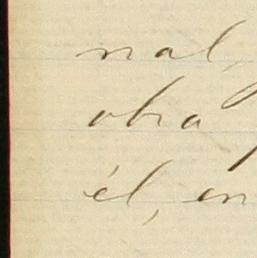 nal,
obra
él, en